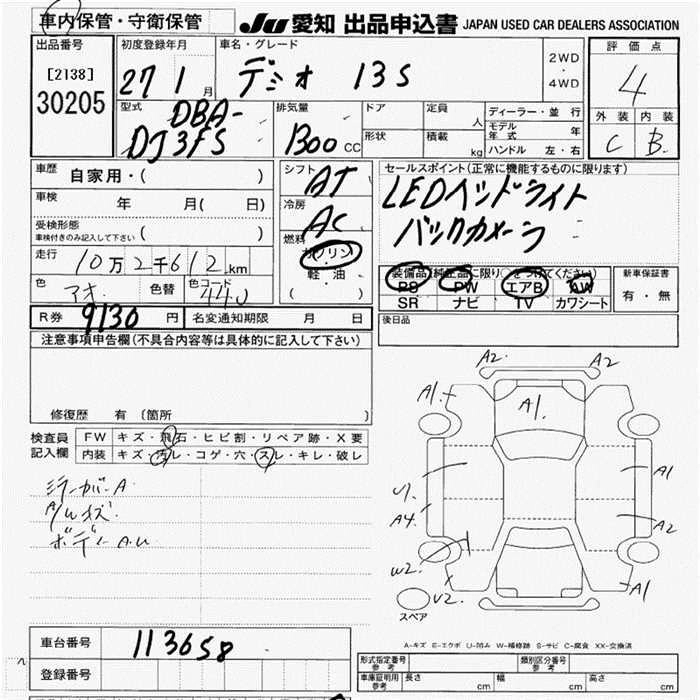 車内保管・守衛保管 JU 愛知 出品申込書 JAPAN USED CAR DEALERS ASSOCIATION
出品番号 [2138] 30205
初度登録年月 27 1 月
車名・グレード デミオ 13S
2WD ・ 4WD
評価点 4
外装 内装
C B
型式 DBA-
DJ3FS
排気量 1300 CC
ドア 定員 人
形状 積載 kg
ディーラー・並行
モデル年式 年
ハンドル 左・右
車歴 自家用・( )
車検 年 月( 日)
受検形態
車検付きのみ記入して下さい ( )
走行 10万2千612 km
色 アオ 色替 色コード 44J
シフト AT
冷房 AC
燃料 ガソリン
・
軽油
( )
セールスポイント(正常に機能するものに限ります)
LEDヘッドライト
バックカメラ
装備品(純正品に限り○をつけてください)
PS PW エアB AW
SR ナビ TV カワシート
新車保証書
有・無
後日品
R券 9130 円 名変通知期限 月 日
注意事項申告欄(不具合内容等は具体的に記入して下さい)
修復歴 有 (箇所 )
検査員 FW キズ・飛石・ヒビ割・リペア跡・X要
記入欄 内装 キズ・汚レ・コゲ・穴・スレ・キレ・破レ
ミラーカバーA
A/Wキズ
ボディーA.U
A2. A2
A1. A1.
U1. A1
A4. A2
W2
V2. A1
スペア
A-キズ E-エクボ U-凹み W-補修跡 S-サビ C-腐食 XX-交換済
車台番号 113658
登録番号
形式指定番号 参考 類別区分番号 参考
車庫証明用 参考 長さ cm 幅 cm 高さ cm